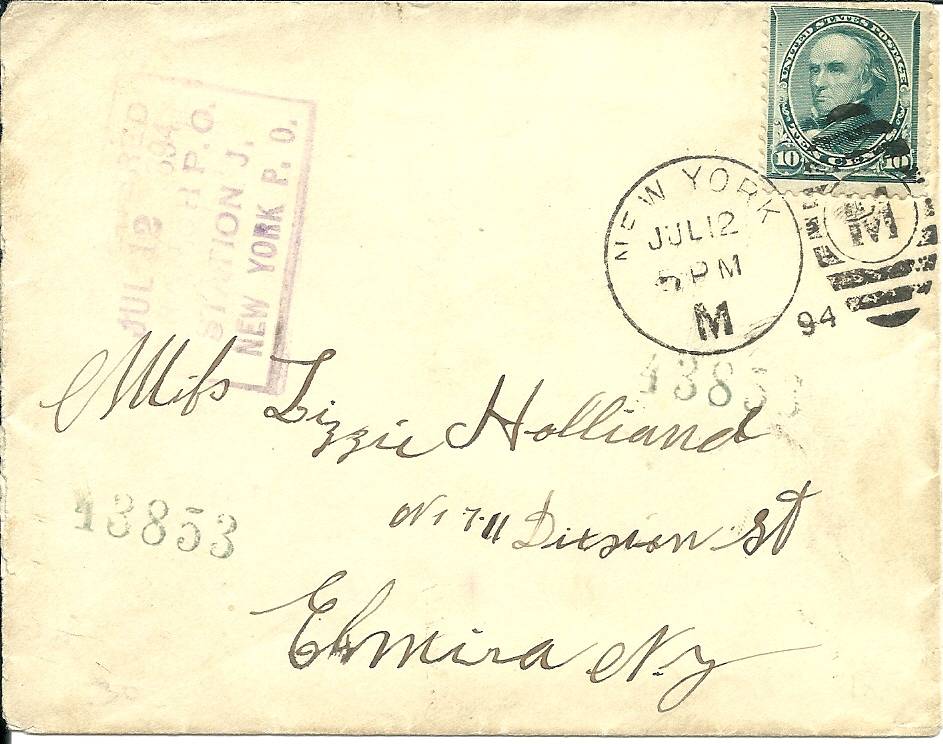 UNITED STATES POSTAGE
10 TEN CENTS 10
JUL 12
R.P.O.
STATION J.
NEW YORK P. O.
NEW YORK
JUL 12
5 PM
M
94
M
13853
Miss Lizzie Holliand
13853
Division St
Elmira N.y